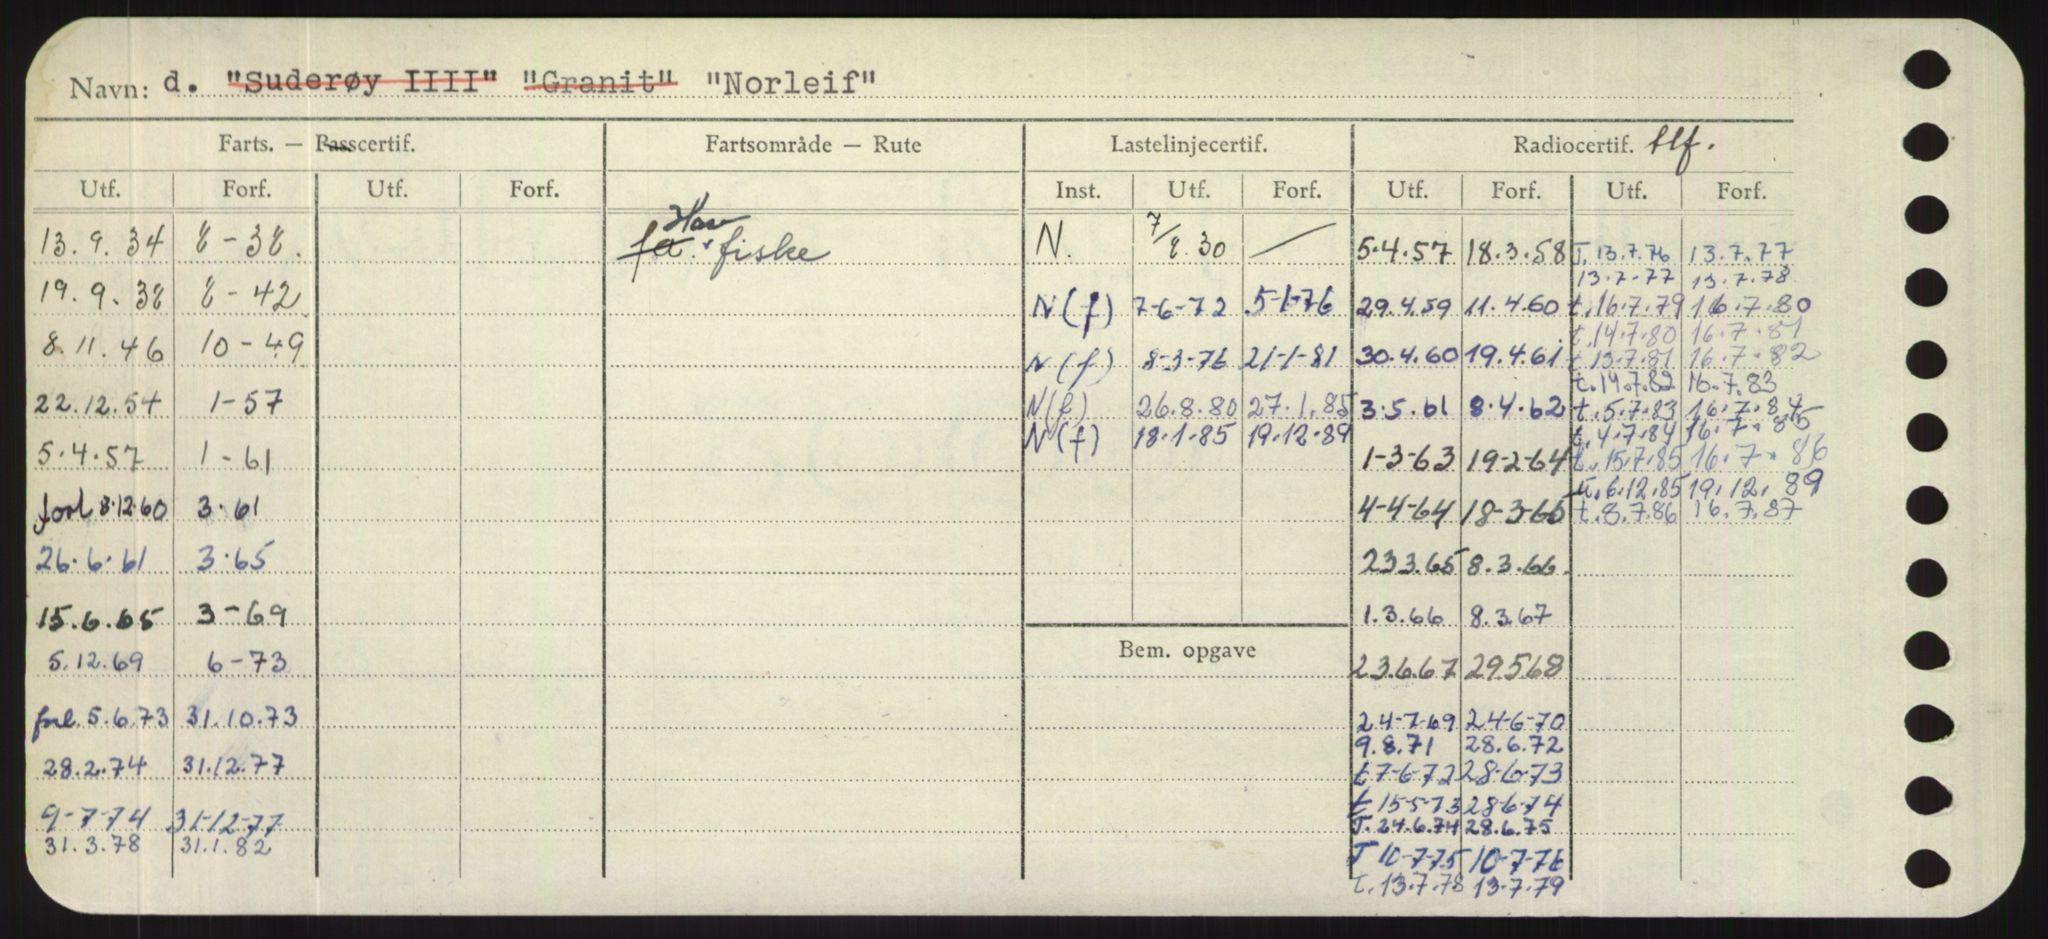 Navn: d. "Suderøy IIII" "Granit" "Norleif"
Farts. — Passcertif. Fartsområde — Rute Lastelinjecertif. Radiocertif. tlf.
Utf. Forf. Utf. Forf. Inst. Utf. Forf. Utf. Forf. Utf. Forf.
Hav
13.9.34 8-38. fa. fiske N. 7/8.30 — 5.4.57 18.3.58 T. 13.7.76 13.7.77
13.7.77 13.7.78
19.9.38 8-42 N(f) 7-6-72 5-1-76 29.4.59 11.4.60 t. 16.7.79 16.7.80
t. 14.7.80 16.7.81
8.11.46 10-49 N(f) 8-3-76 21-1-81 30.4.60 19.4.61 t. 13.7.81 16.7.82
t. 14.7.82 16.7.83
22.12.54 1-57 N(f) 26.8.80 27.1.85 3.5.61 8.4.62 t. 5.7.83 16.7.84
N(f) 18.1.85 19.12.89 t. 4.7.84 16.7.85
5.4.57 1-61 1-3-63 19-2-64 t. 15.7.85 16.7.86
t. 6.12.85 19.12.89
forl 8.12.60 3.61 4-4-64 18-3-65 t. 8.7.86 16.7.87
26.6.61 3.65 23.3.65 8.3.66.
15.6.65 3-69 1.3.66 8.3.67
Bem. opgave
5.12.69 6-73 23.6.67 29.5.68
forl. 5.6.73 31.10.73 24-7-69 24-6-70
9.8.71 28.6.72
28.2.74 31.12.77 t 7-6-72 28-6-73
9-7-74 31-12-77 t 15-5-73 28-6-74
T. 24.6.74 28.6.75
31.3.78 31.1.82 T 10-7-75 10-7-76
t. 13.7.78 13.7.79